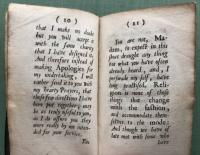 ( 10 )
that I make no doubt
but you will accept it
with the same charity
that I have designed it.
And therefore instead of
making Apologies for
my undertaking, I will
rather send it to you with
my hearty Prayers, that
these few directions I have
put together may
be as truly useful to you,
as I do assure you they
were really by me intend-
ed for your service.
You
( 11 )
You are not, Ma-
dam, to expect in this
short draught any thing
but what you have often
already heard, and, I
perswade my self, have
long practised. Reli-
gion is none of those
things that change
with the fashion,
and accommodate them-
selves to the mode:
And though we have of
late met with some who
have